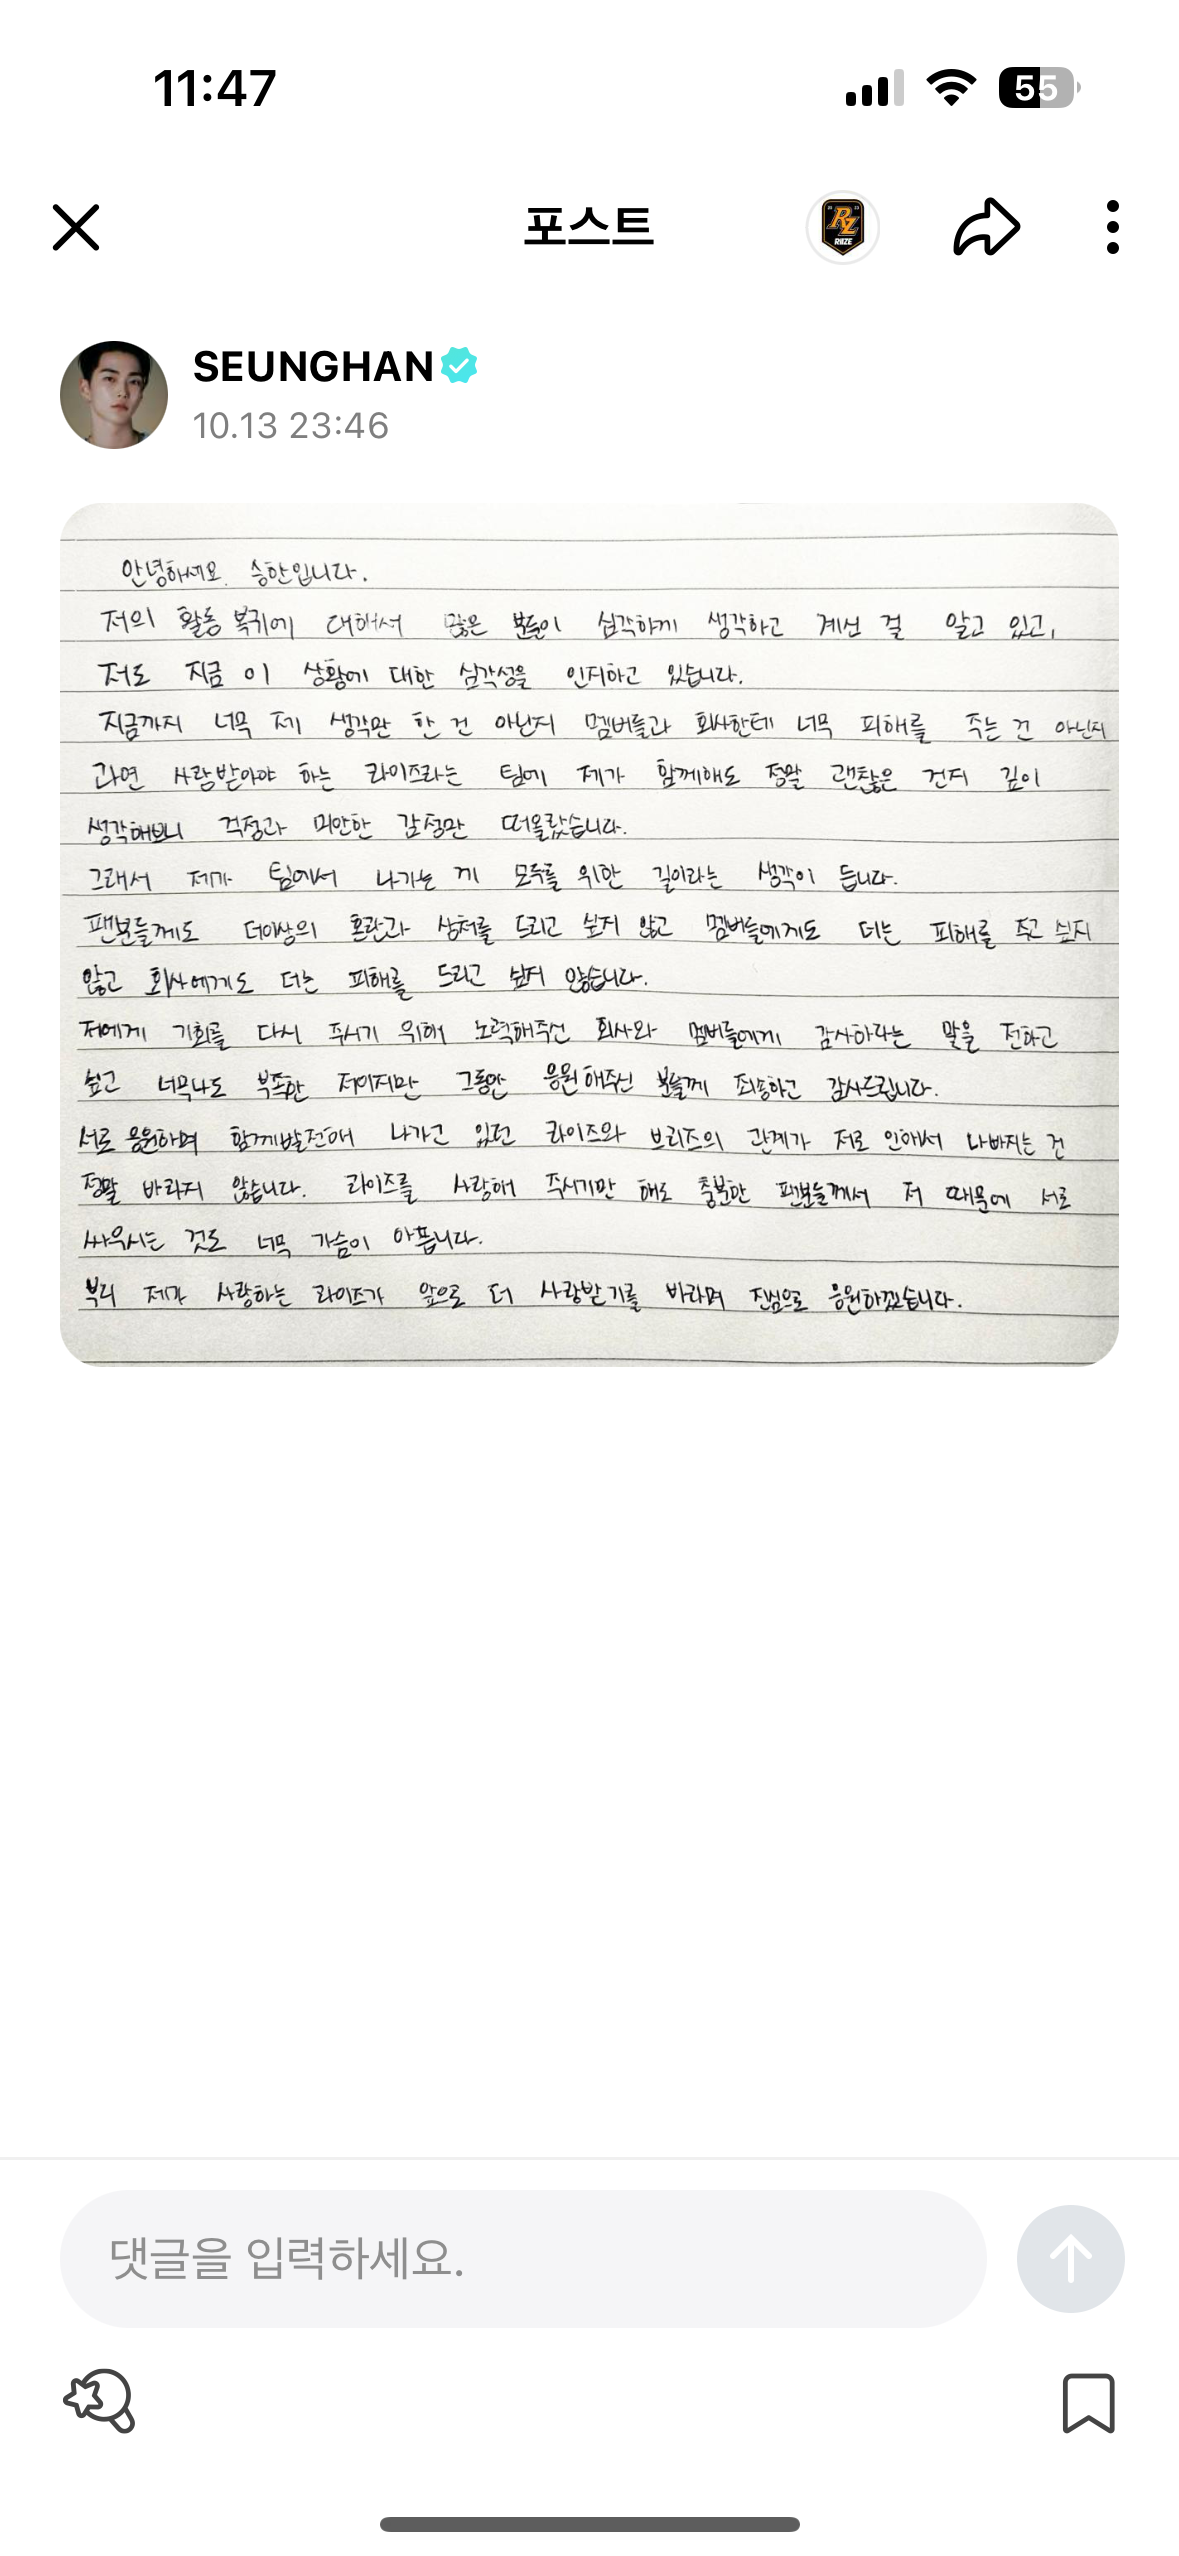 11:47
55
포스트
RZ
RIIZE
SEUNGHAN
10.13 23:46
안녕하세요. 승한입니다.
저의 활동 복귀에 대해서 많은 분들이 심각하게 생각하고 계신 걸 알고 있고,
저도 지금 이 상황에 대한 심각성을 인지하고 있습니다.
지금까지 너무 제 생각만 한 건 아닌지 멤버들과 회사한테 너무 피해를 주는 건 아닌지
과연 사랑받아야 하는 라이즈라는 팀에 제가 함께해도 정말 괜찮은 건지 깊이
생각해보니 걱정과 미안한 감정만 떠올랐습니다.
그래서 제가 팀에서 나가는 게 모두를 위한 길이라는 생각이 듭니다.
팬분들께도 더이상의 혼란과 상처를 드리고 싶지 않고 멤버들에게도 더는 피해를 주고 싶지
않고 회사에게도 더는 피해를 드리고 싶지 않습니다.
저에게 기회를 다시 주시기 위해 노력해주신 회사와 멤버들에게 감사하다는 말을 전하고
싶고 너무나도 부족한 저이지만 그동안 응원해주신 분들께 죄송하고 감사드립니다.
서로 응원하며 함께 발전해 나가고 있던 라이즈와 브리즈의 관계가 저로 인해서 나빠지는 건
정말 바라지 않습니다. 라이즈를 사랑해 주시기만 해도 충분한 팬분들께서 저 때문에 서로
싸우시는 것도 너무 가슴이 아픕니다.
부디 제가 사랑하는 라이즈가 앞으로 더 사랑받기를 바라며 진심으로 응원하겠습니다.
댓글을 입력하세요.